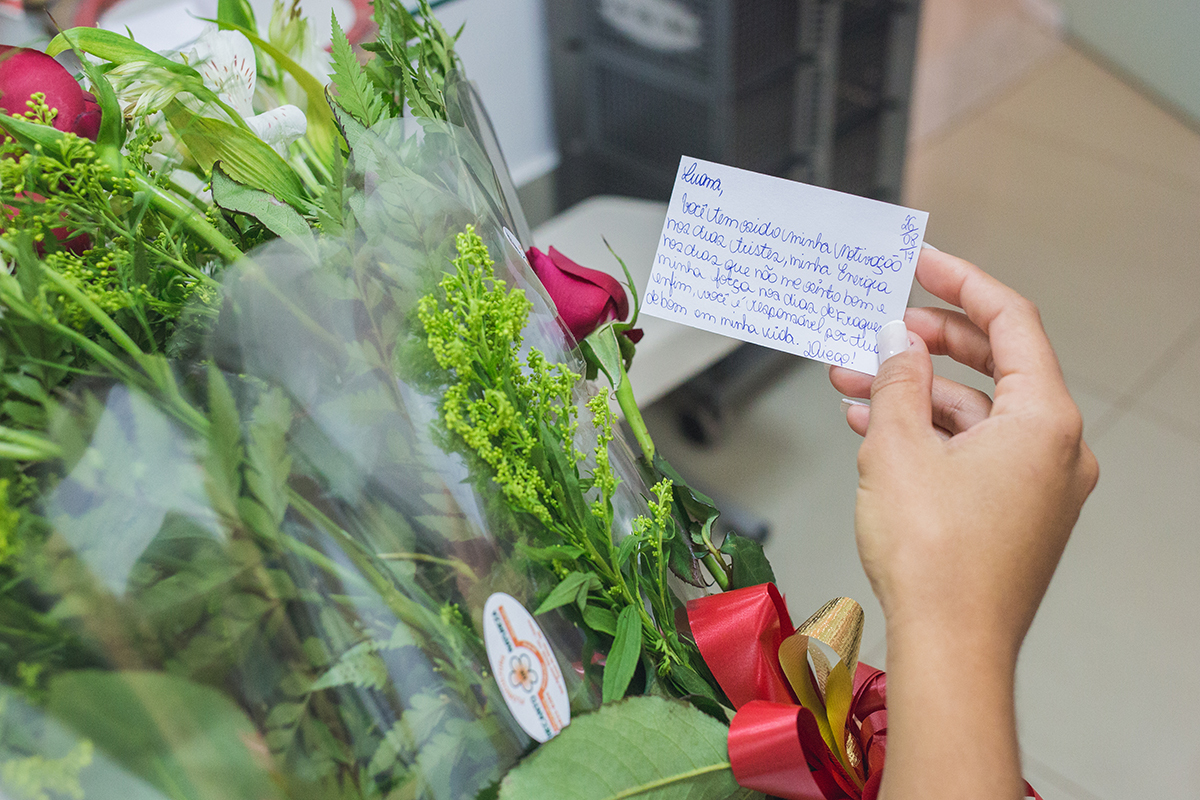 Luana,
26
08
17
Você tem sido minha motivação
nos dias tristes, minha Energia
nos dias que não me sinto bem e
minha força nos dias de fraque
enfim, você é responsável por tudo
de bom em minha vida. Diego!
RECANTO